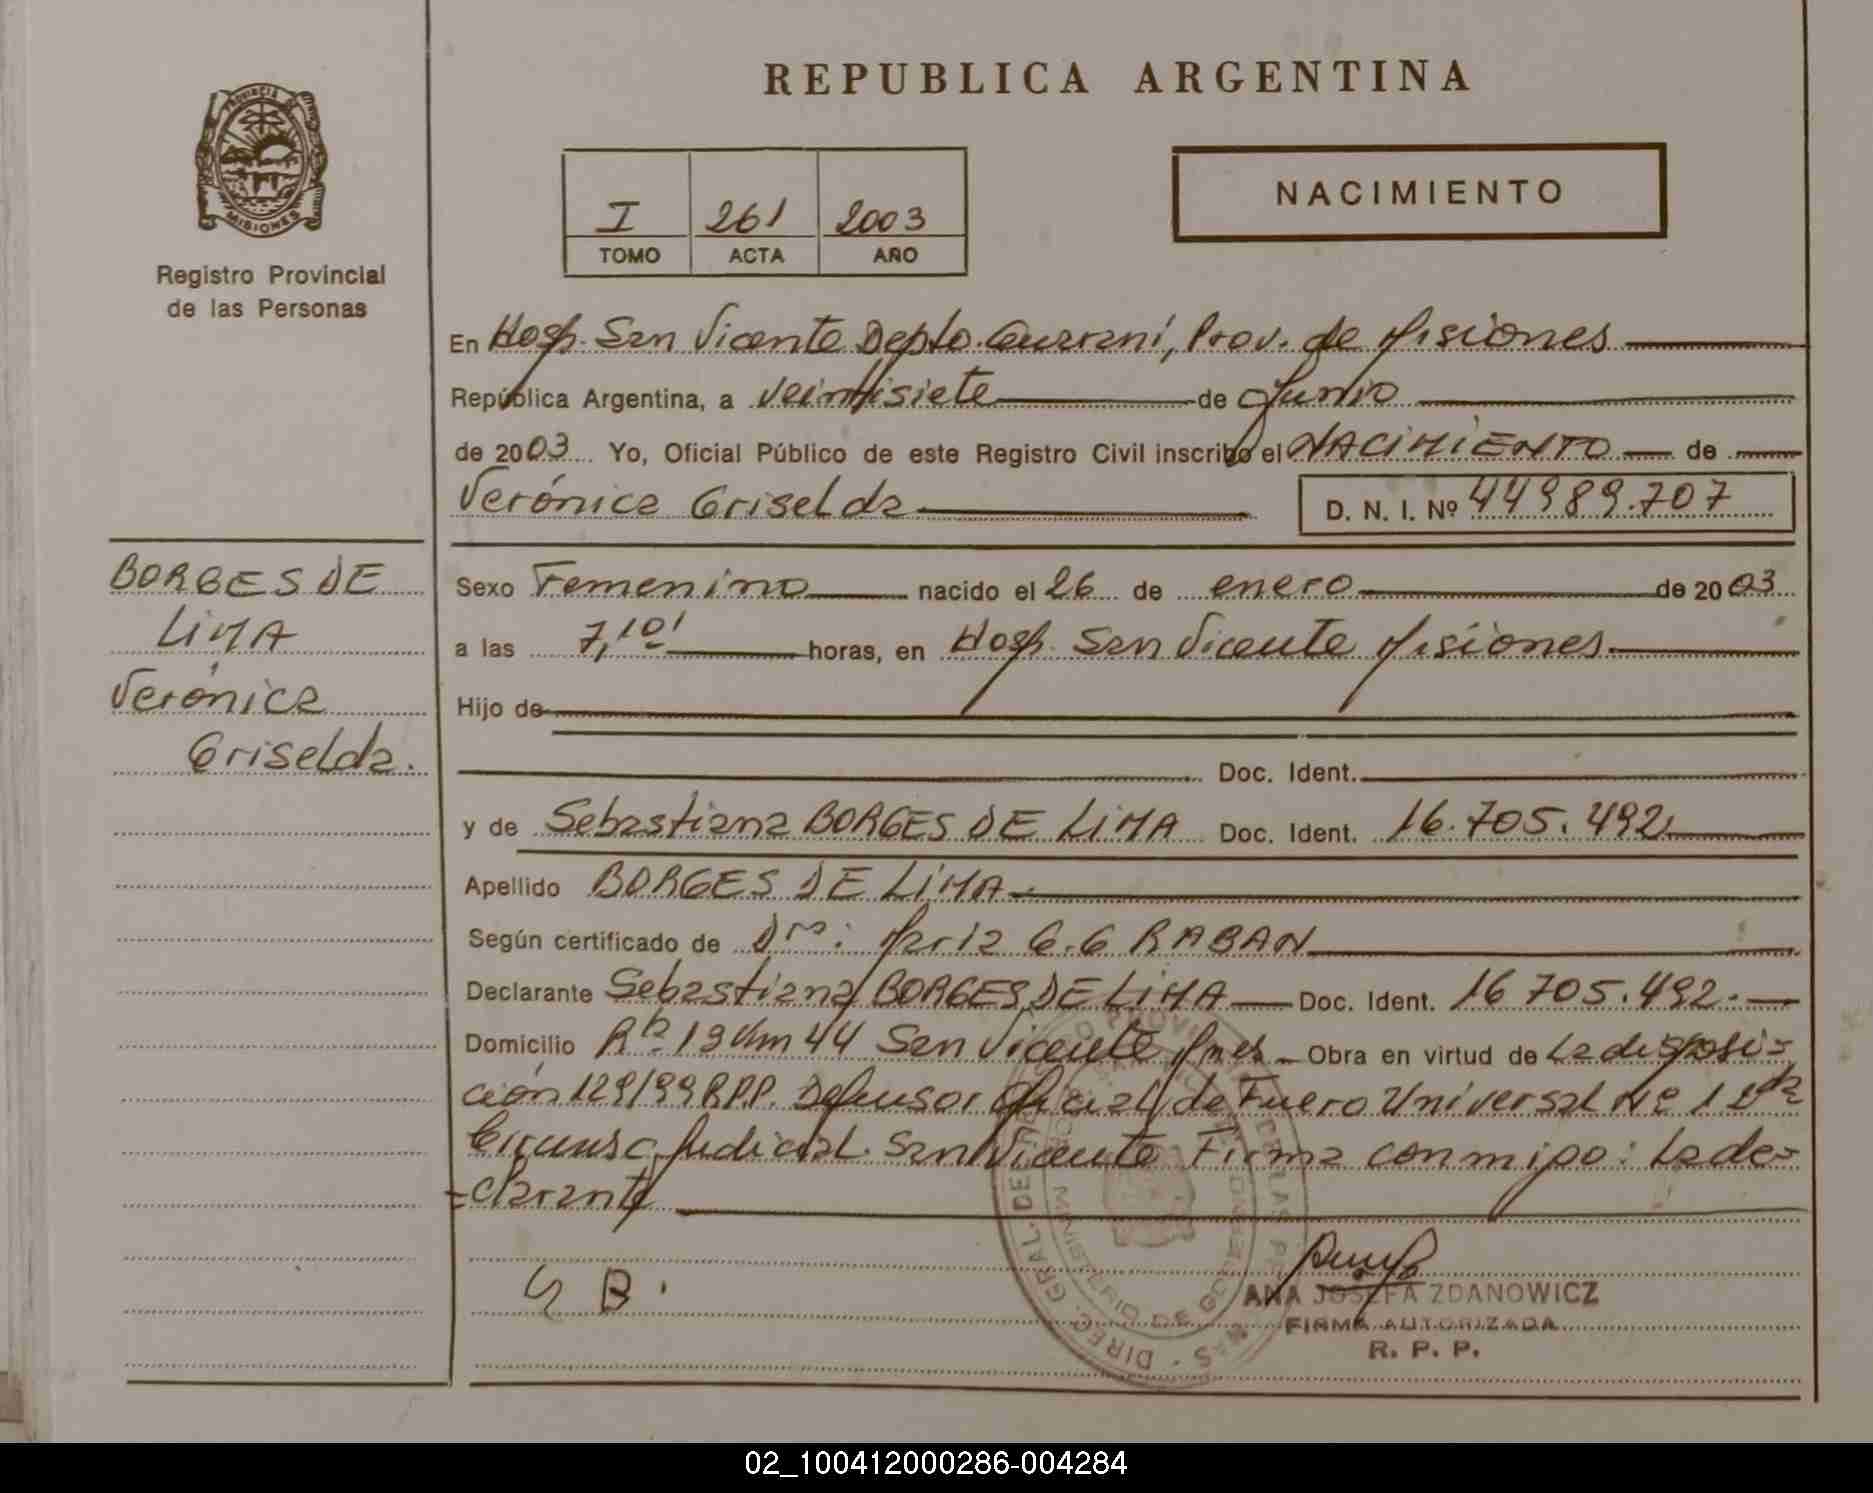 REPUBLICA ARGENTINA
PROVINCIA DE
MISIONES
Registro Provincial
de las Personas
I 261 2003
TOMO ACTA AÑO
NACIMIENTO
En Hosp. San Vicente Depto. Guaraní, Prov. de Misiones
República Argentina, a veintisiete de Junio
de 2003 Yo, Oficial Público de este Registro Civil inscribo el NACIMIENTO de
Verónica Griselda D. N. I. Nº 44989.707
BORGES DE
LIMA
Verónica
Griselda.
Sexo Femenino nacido el 26 de enero de 2003
a las 7,10' horas, en Hosp. San Vicente Misiones.
Hijo de
Doc. Ident.
y de Sebastiana BORGES DE LIMA Doc. Ident. 16.705.492
Apellido BORGES DE LIMA.
Según certificado de Dra: Maria G.G RABAN
Declarante Sebastiana BORGES DE LIMA Doc. Ident. 16 705.492.
Domicilio Rta 13 Km 44 San Vicente Mnes. Obra en virtud de La disposi=
ción 129/99 R.P.P. Defensor Oficial de Fuero Universal Nº 1 2da
Circunsc. Judicial. San Vicente Firma conmigo: La de=
=clarante
S B.
ANA JOSEFA ZDANOWICZ
FIRMA AUTORIZADA
R. P. P.
DIREC. GRAL. DE
MINISTERIO DE GOBIERNO
02_100412000286-004284